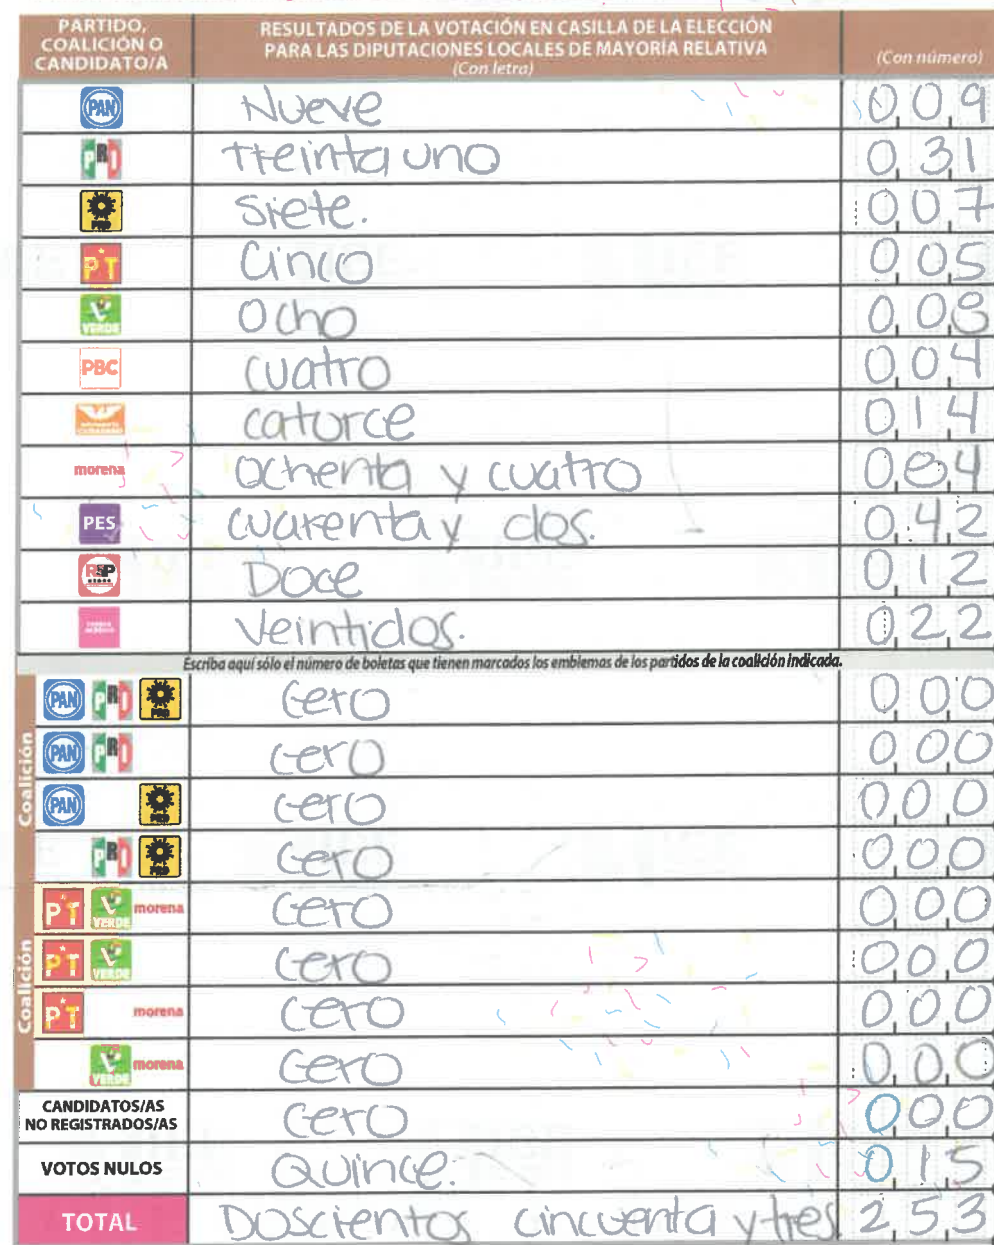 PARTIDO, COALICIÓN O CANDIDATO/A
RESULTADOS DE LA VOTACIÓN EN CASILLA DE LA ELECCIÓN PARA LAS DIPUTACIONES LOCALES DE MAYORÍA RELATIVA
(Con letra)
(Con número)
PAN Nueve 009
PRI Treinta uno 031
PRD Siete. 007
PT Cinco 005
VERDE Ocho 008
PBC cuatro 004
catorce 014
morena ochenta y cuatro 084
PES cuarenta y dos. 042
RSP Doce 012
veintidos. 022
Escriba aquí sólo el número de boletas que tienen marcados los emblemas de los partidos de la coalición indicada.
Coalición
PAN PRI PRD cero 000
PAN PRI cero 000
PAN PRD cero 000
PRI PRD cero 000
Coalición
PT VERDE morena cero 000
PT VERDE cero 000
PT morena cero 000
VERDE morena cero 000
CANDIDATOS/AS NO REGISTRADOS/AS cero 000
VOTOS NULOS Quince. 015
TOTAL Doscientos cincuenta y tres 253